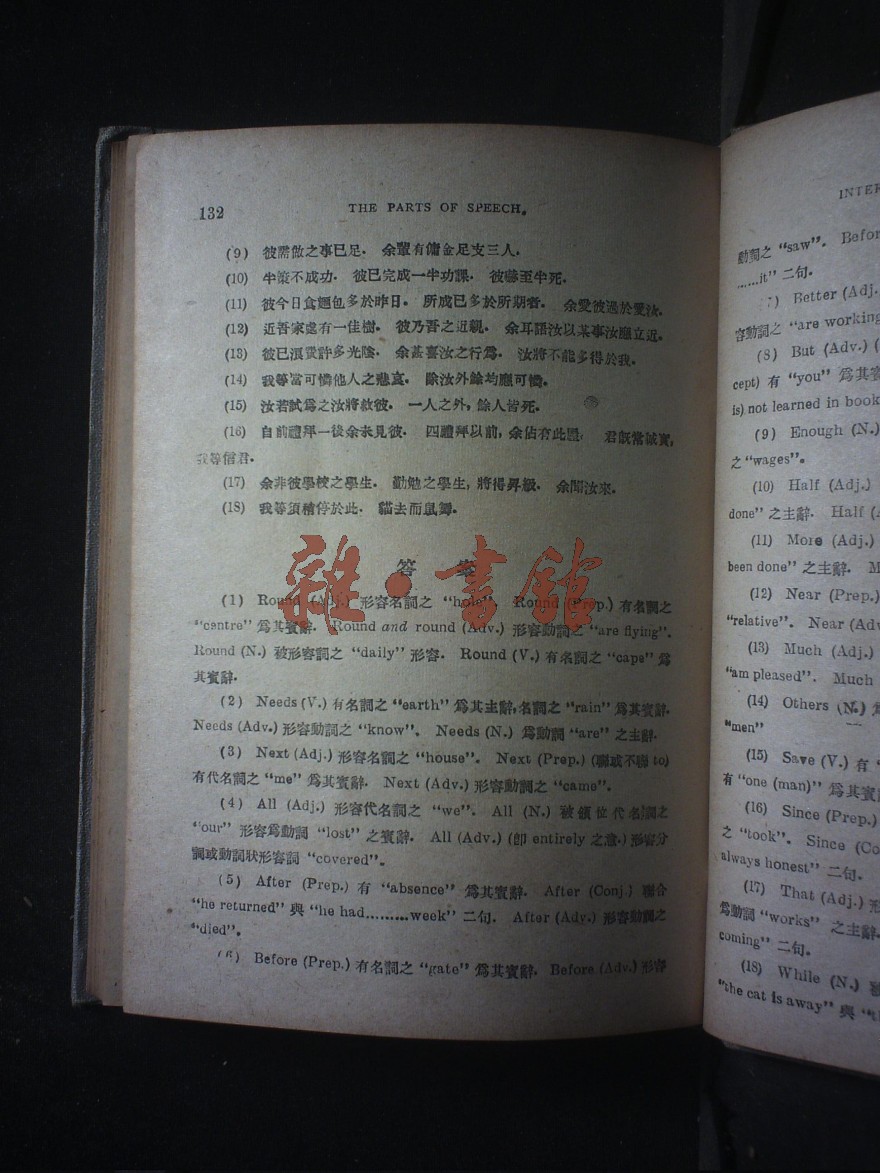 132
THE PARTS OF SPEECH.
(9) 彼需做之事已足. 余輩有傭金足支三人.
(10) 半策不成功. 彼已完成一半功課. 彼嚇至半死.
(11) 彼今日食麵包多於昨日. 所成已多於所期者. 余愛彼過於愛汝.
(12) 近吾家處有一佳樹. 彼乃吾之近親. 余耳語汝以某事汝應立近.
(13) 彼已浪費許多光陰. 余甚喜汝之行爲. 汝將不能多得於我.
(14) 我等當可憐他人之悲哀. 除汝外餘均應可憐.
(15) 汝若試爲之汝將救彼. 一人之外, 餘人皆死.
(16) 自前禮拜一後余未見彼. 四禮拜以前, 余佔有此 君旣常誠實,
我等信君.
(17) 余非彼學校之學生. 勤勉之學生, 將得昇級. 余聞汝來.
(18) 我等須稍停於此. 貓去而鼠舞.
雜·書館
答 案
(1) Round (Adj.) 形容名詞之 “hole”. Round (Prep.) 有名詞之
“centre” 爲其賓辭. Round and round (Adv.) 形容動詞之 “are flying”.
Round (N.) 被形容詞之 “daily” 形容. Round (V.) 有名詞之 “cape” 爲
其賓辭.
(2) Needs (V.) 有名詞之 “earth” 爲其主辭, 名詞之 “rain” 爲其賓辭.
Needs (Adv.) 形容動詞之 “know”. Needs (N.) 爲動詞 “are” 之主辭.
(3) Next (Adj.) 形容名詞之 “house”. Next (Prep.) (聯或不聯 to)
有代名詞之 “me” 爲其賓辭. Next (Adv.) 形容動詞之 “came”.
(4) All (Adj.) 形容代名詞之 “we”. All (N.) 被領位代名詞之
“our” 形容爲動詞 “lost” 之賓辭. All (Adv.) (卽 entirely 之意.) 形容分
詞或動詞狀形容詞 “covered”.
(5) After (Prep.) 有 “absence” 爲其賓辭. After (Conj.) 聯合
“he returned” 與 “he had.........week” 二句. After (Adv.) 形容動詞之
“died”.
(6) Before (Prep.) 有名詞之 “gate” 爲其賓辭. Before (Adv.) 形容
動詞之 “saw”.
......it” 二句.
7) Better (Adj.
容動詞之 “are working
(8) But (Adv.) (
cept) 有 “you” 爲其賓
is) not learned in book
(9) Enough (N.)
之 “wages”.
(10) Half (Adj.)
done” 之主辭. Half
(11) More (Adj.)
been done” 之主辭.
(12) Near (Prep.)
“relative”. Near (Adv
(13) Much (Adj.)
“am pleased”. Much
(14) Others (N.) 爲
“men”
(15) Save (V.) 有
有 “one (man)” 爲其賓
(16) Since (Prep.)
之 “took”. Since (Co
always honest” 二句.
(17) That (Adj.) 形
爲動詞 “works” 之主辭.
coming” 二句.
(18) While (N.)
“the cat is away” 與